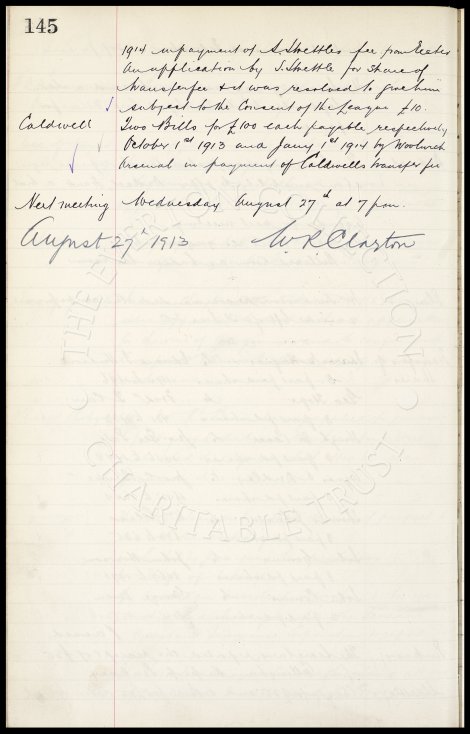 145
1914 in payment of S. Shettles fee from Exeter
An application by S. Shettle for share of
transfer fee & it was resolved to give him
subject to the Consent of the League £10.
Caldwell Two Bills for £100 each payable respectively
October 1st 1913 and Jany 1st 1914 by Woolwich
Arsenal in payment of Caldwells transfer fee
Next meeting Wednesday August 27th at 7 pm.
August 27th 1913 W.R. Clayton
THE EVERTON COLLECTION
CHARITABLE TRUST